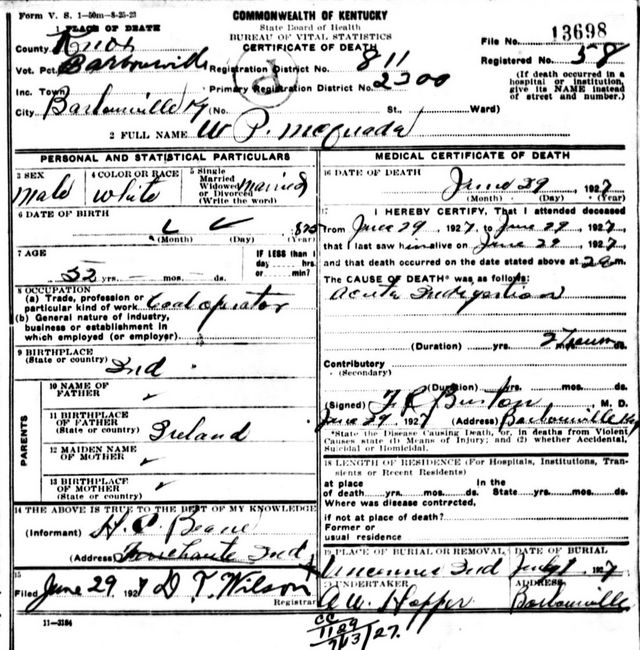 Form V. S. 1-50m-8-25-23
COMMONWEALTH OF KENTUCKY
State Board of Health
BUREAU OF VITAL STATISTICS
CERTIFICATE OF DEATH
File No. 13698
Registered No. 58
(If death occurred in a hospital or institution, give its NAME instead of street and number.)
1 PLACE OF DEATH
County Knox
Vot. Pct. Barbourville Registration District No. 811
Inc. Town Primary Registration District No. 2300
City Barbourville Ky (No. St., Ward)
2 FULL NAME W P. McQuada
PERSONAL AND STATISTICAL PARTICULARS
3 SEX
Male
4 COLOR OR RACE
White
5 Single
Married
Widowed
or Divorced
(Write the word)
Married
6 DATE OF BIRTH
875
(Month) (Day) (Year)
7 AGE
52 yrs. mos. ds.
IF LESS than 1
day hrs.
or min?
8 OCCUPATION
(a) Trade, profession or
particular kind of work Coal operator
(b) General nature of industry,
business or establishment in
which employed (or employer)
9 BIRTHPLACE
(State or country)
Ind
PARENTS
10 NAME OF
FATHER ✓
11 BIRTHPLACE
OF FATHER
(State or country) Ireland
12 MAIDEN NAME
OF MOTHER ✓
13 BIRTHPLACE
OF MOTHER ✓
(State or country)
14 THE ABOVE IS TRUE TO THE BEST OF MY KNOWLEDGE
(Informant)
(Address Ind
15
Filed June 29 1927 D T. Wilson
Registrar
11-3184
MEDICAL CERTIFICATE OF DEATH
16 DATE OF DEATH
June 29, 1927
(Month) (Day) (Year)
17 I HEREBY CERTIFY, That I attended deceased
from June 29 1927 to June 29, 1927
that I last saw him alive on June 29, 1927
and that death occurred on the date stated above at 2 a m.
The CAUSE OF DEATH* was as follows:
Acute Indigestion
(Duration) yrs. mos. ds.
Contributory
(Secondary)
(Duration) yrs. mos. ds.
(Signed) Burton, M. D.
June 29, 1927 (Address) Barbourville Ky
*State the Disease Causing Death, or, in deaths from Violent
Causes state (1) Means of Injury; and (2) whether Accidental,
Suicidal or Homicidal.
18 LENGTH OF RESIDENCE (For Hospitals, Institutions, Transients or Recent Residents)
at place In the
of death yrs. mos. ds. State yrs. mos. ds.
Where was disease contracted,
if not at place of death?
Former or
usual residence
19 PLACE OF BURIAL OR REMOVAL
Vincennes Ind
DATE OF BURIAL
July 1 1927
20 UNDERTAKER
A W. Hopper
ADDRESS
Barbourville
CC
1129
7/13/27.